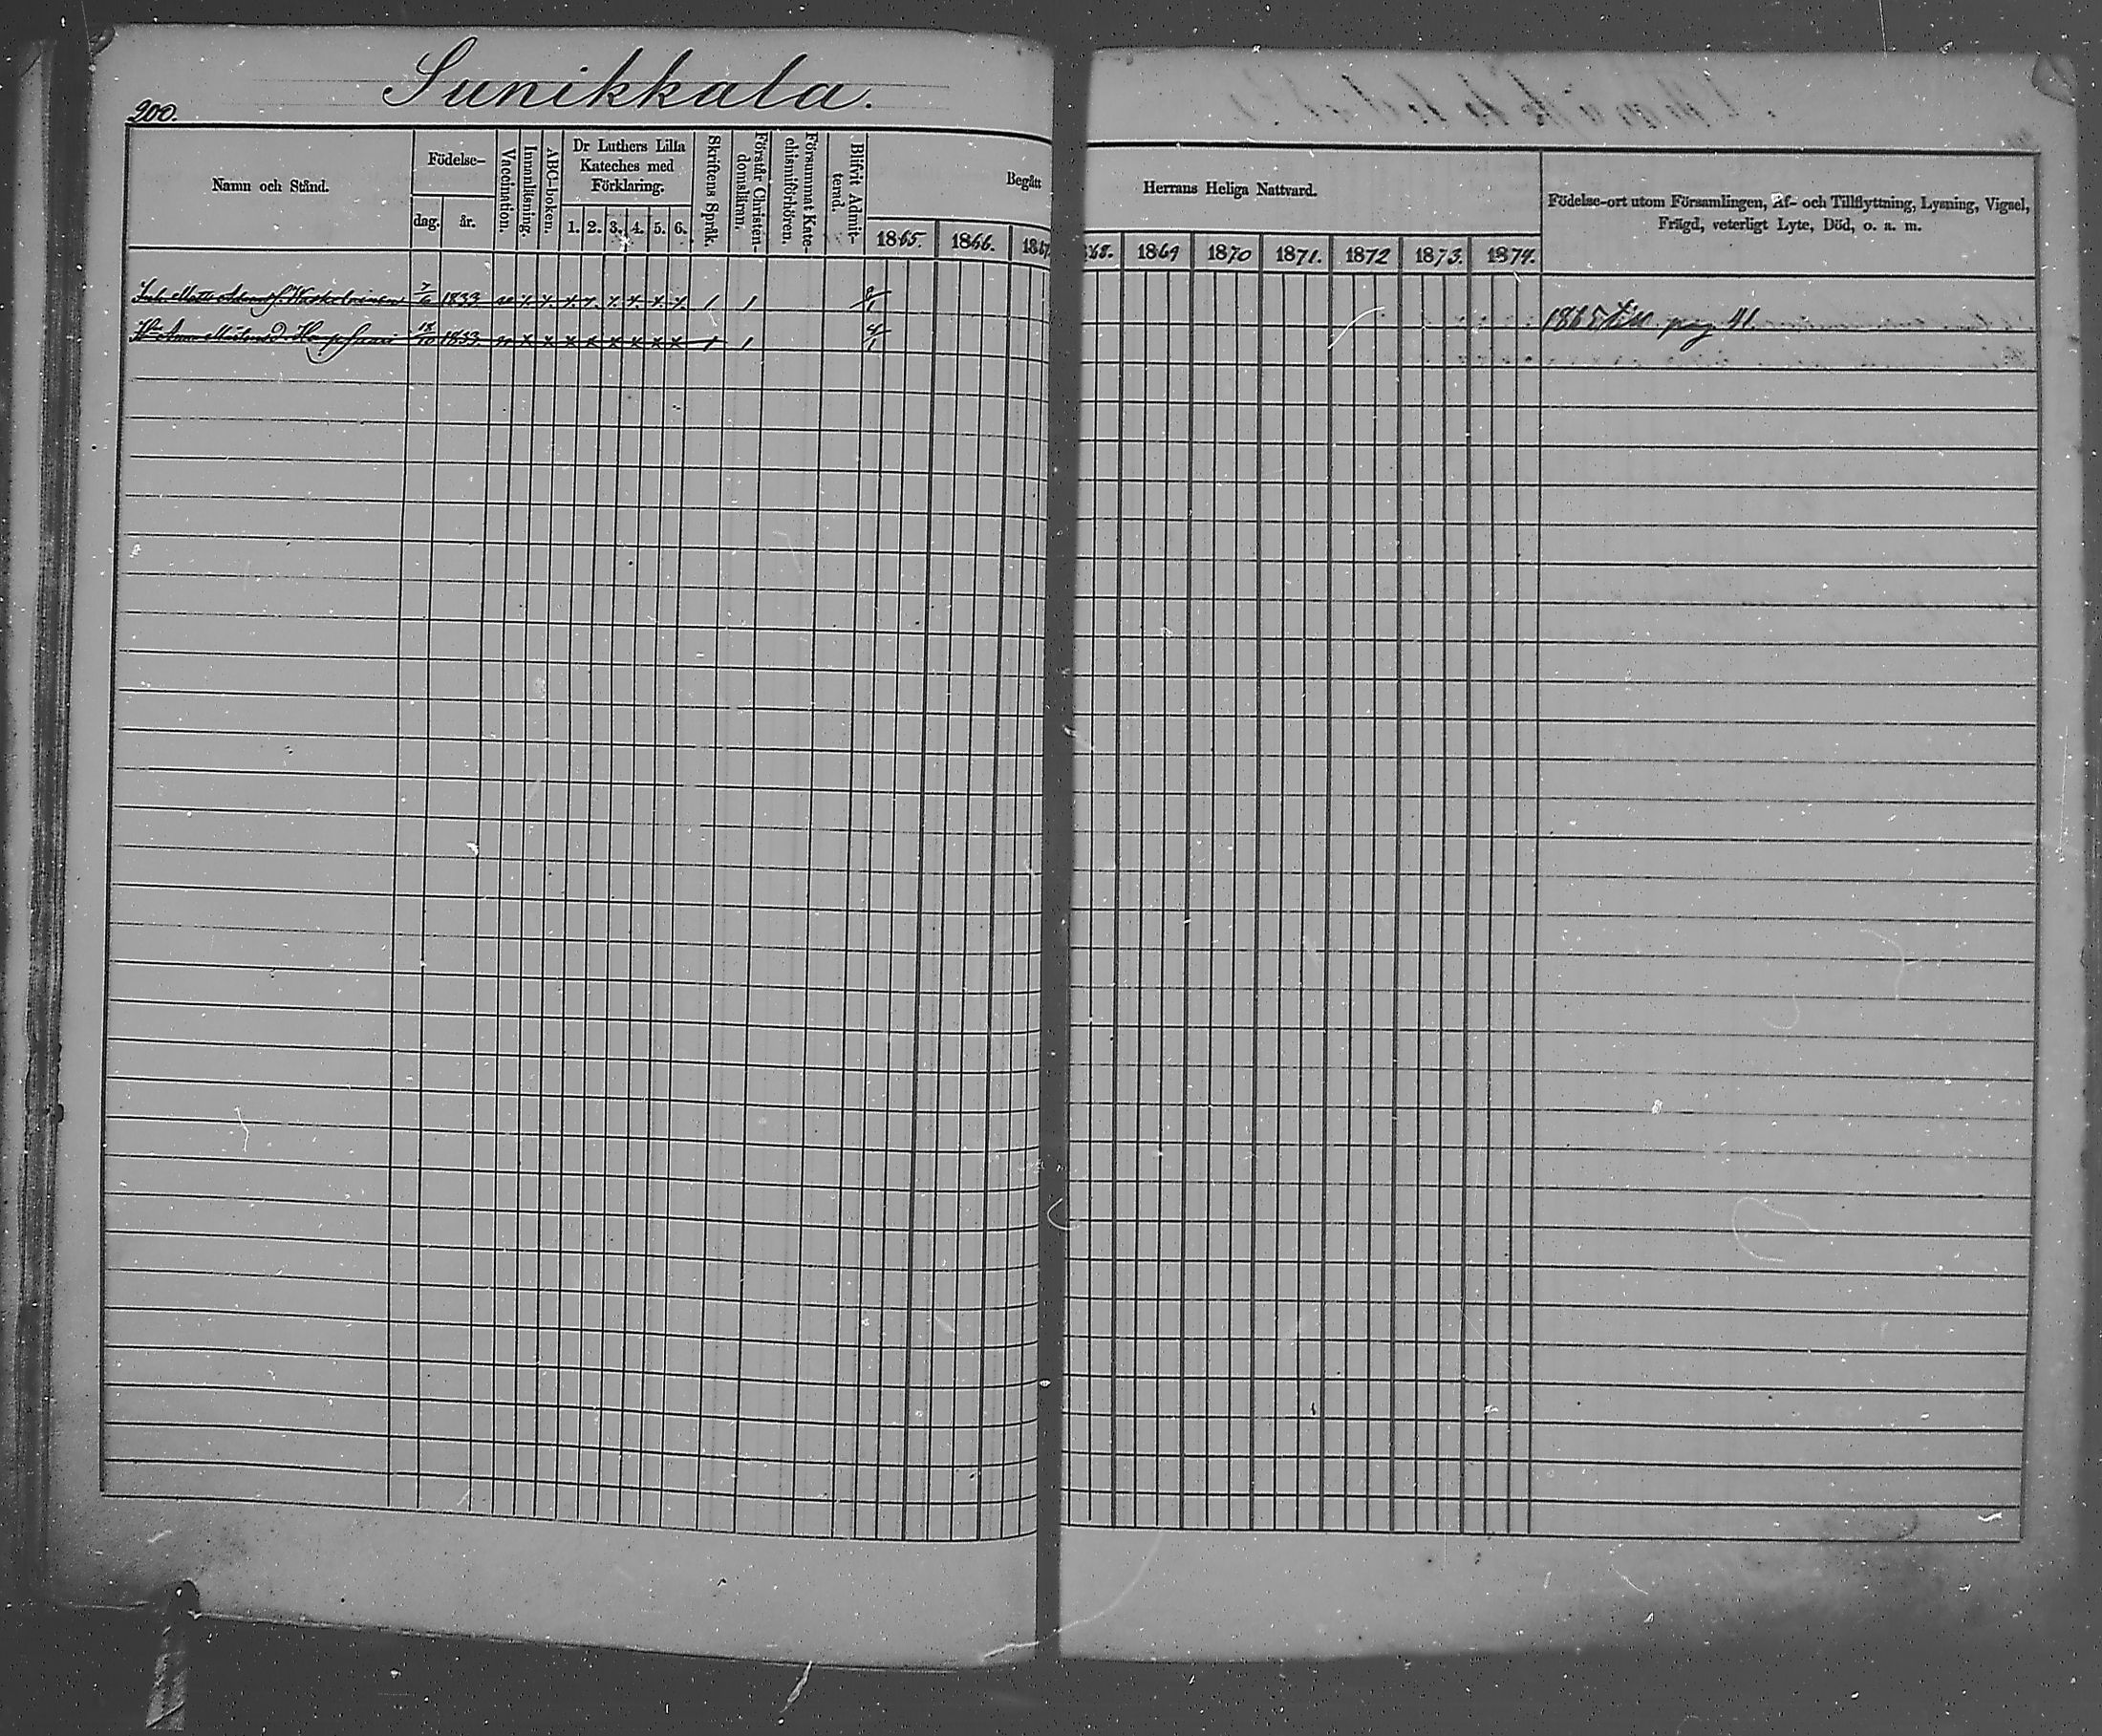 200.
Sunikkala.
Namn och Stånd.
Födelse-
dag.
år.
Vaccination.
Innanläsning.
ABC-boken.
Dr Luthers Lilla
Kateches med
Förklaring.
1. 2. 3. 4. 5. 6.
Skriftens Språk.
Förstår Christen-
domsläran.
Försummat Kate-
chismiförhören.
Blifvit Admit-
terad.
Begått
Herrans Heliga Nattvard.
1865. 1866. 1867.
1868. 1869 1870 1871. 1872 1873. 1874.
Födelse-ort utom Församlingen, Af- och Tillflyttning, Lysning, Vigsel,
Frägd, veterligt Lyte, Död, o. a. m.
Inh. Matts 7/6 1833 1 1
1865 till pag 41.
Hu Anna 18/10 1833. 1 1